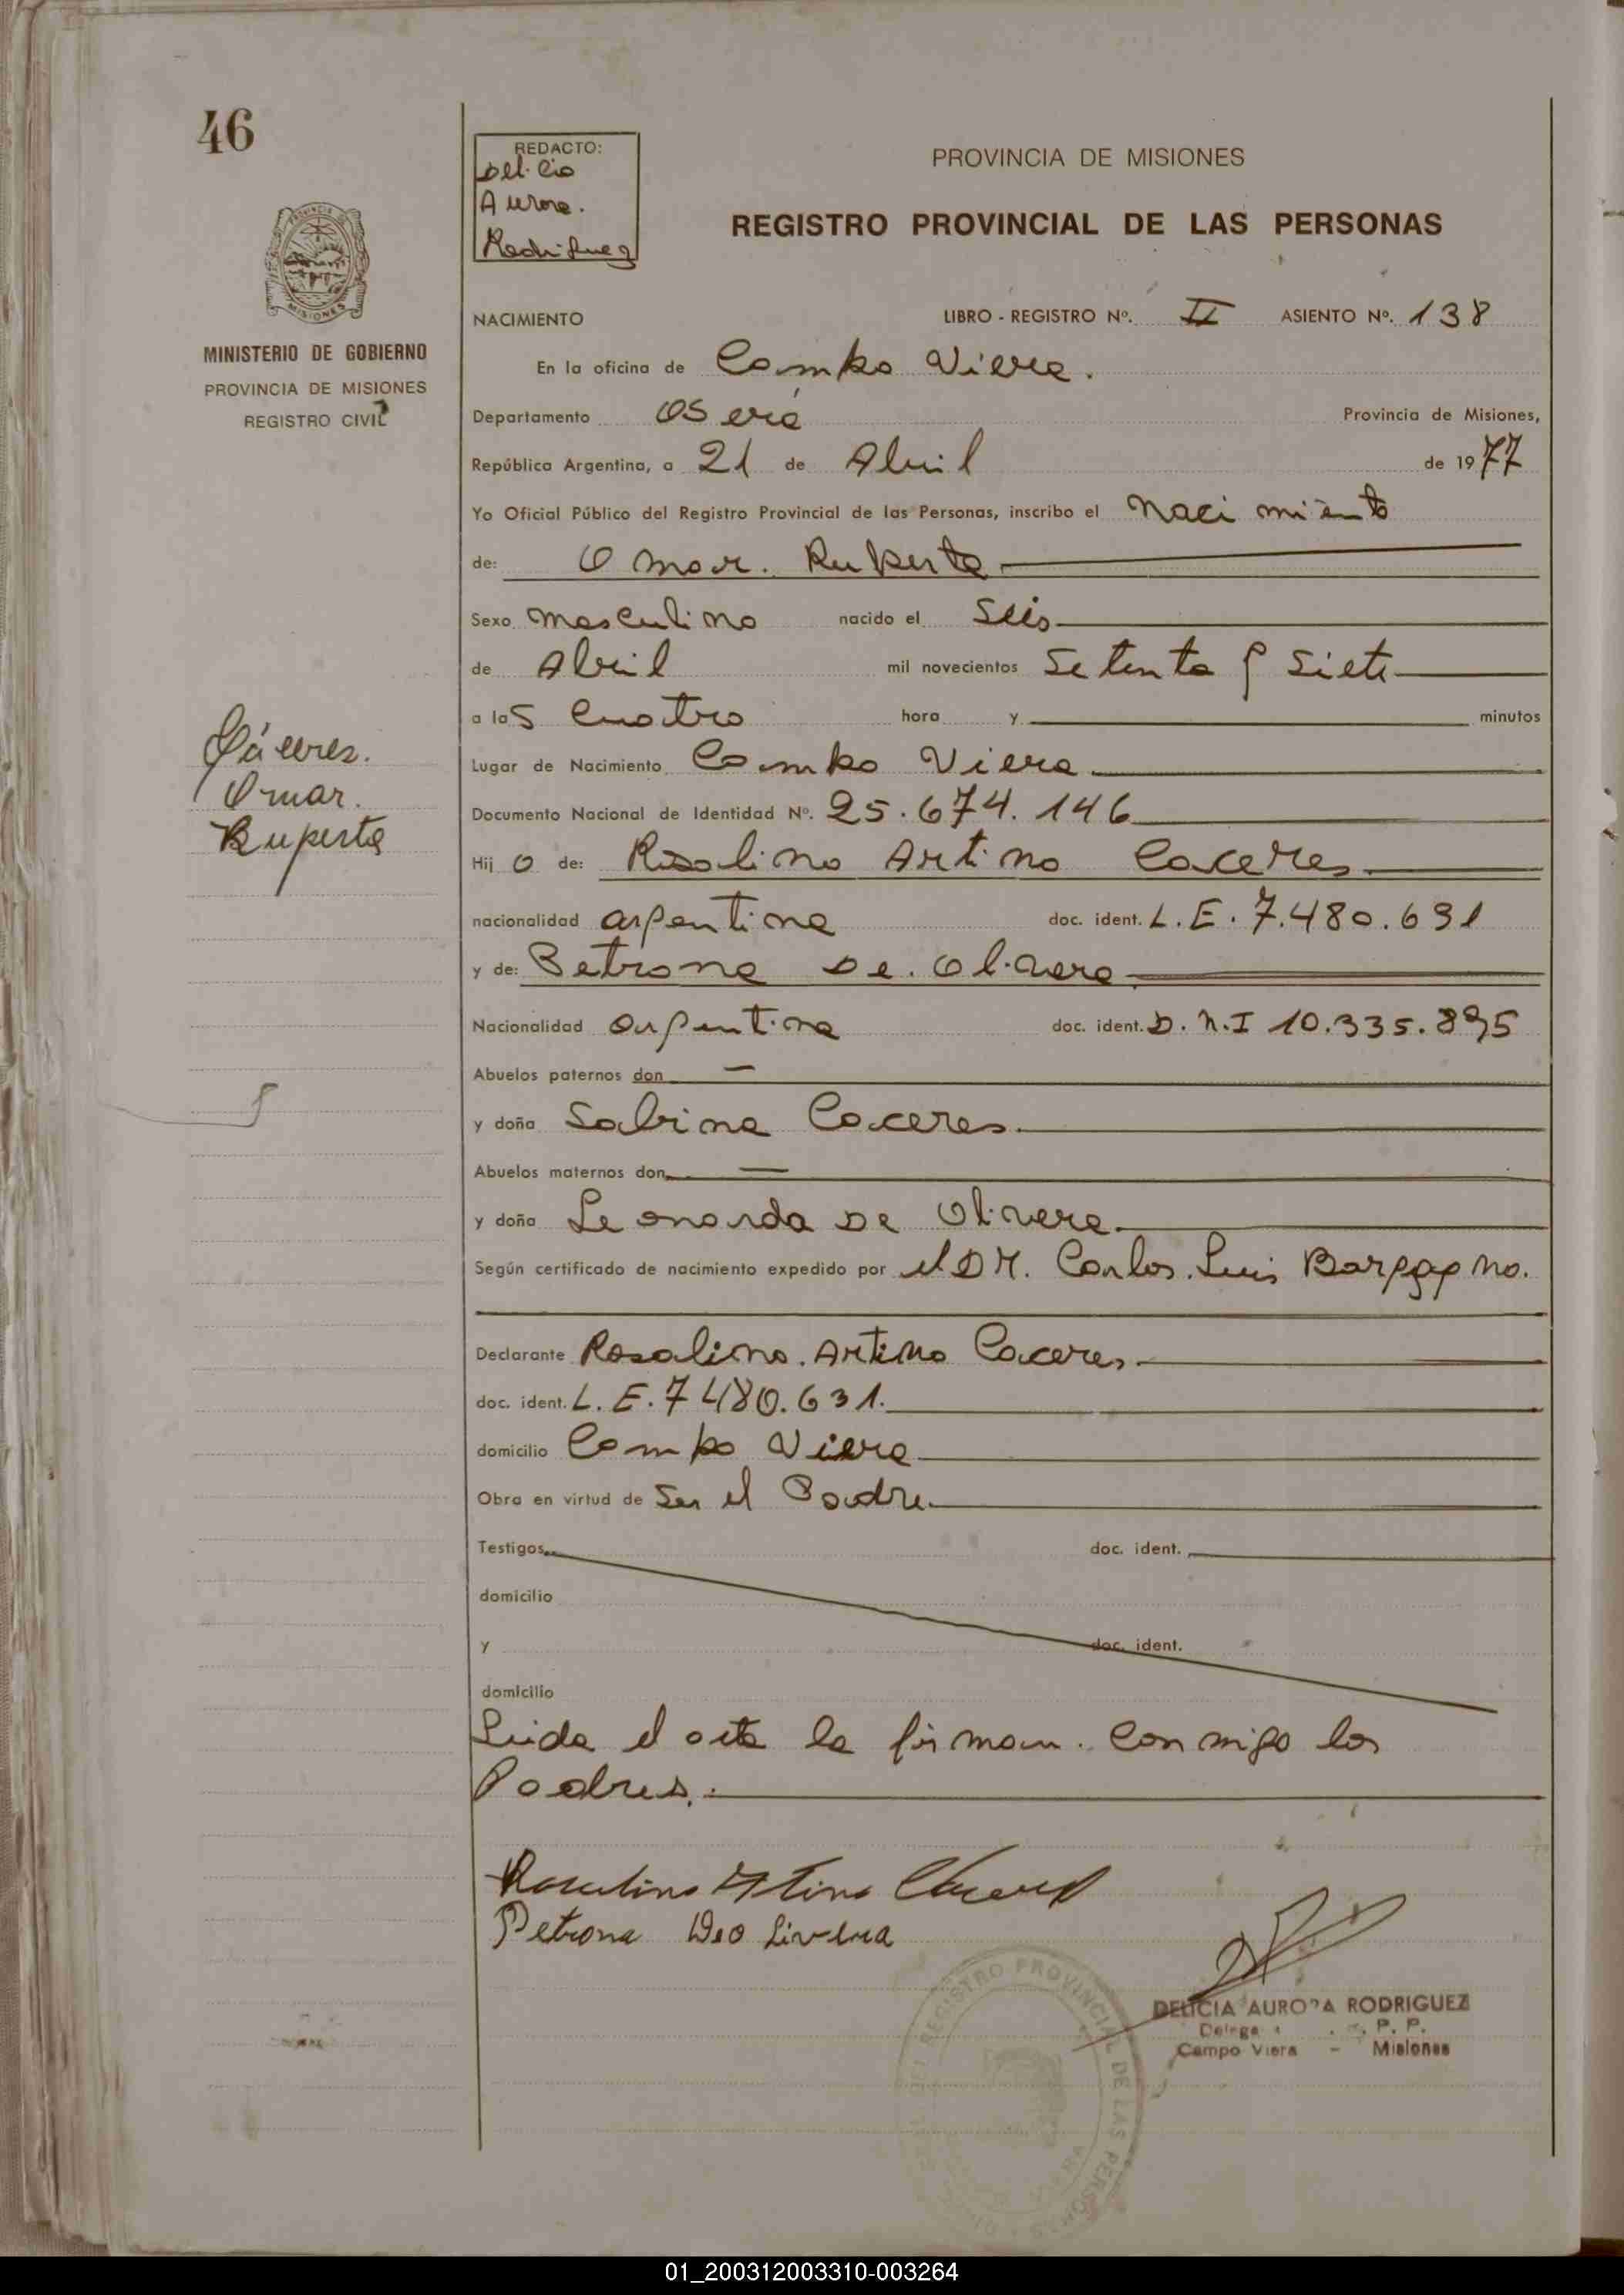 46
REDACTO:
Delicia
Aurora.
Rodriguez
PROVINCIA DE MISIONES
REGISTRO PROVINCIAL DE LAS PERSONAS
MISIONES
MINISTERIO DE GOBIERNO
PROVINCIA DE MISIONES
REGISTRO CIVIL
NACIMIENTO LIBRO - REGISTRO Nº. II ASIENTO Nº. 138
En la oficina de Campo Viera.
Departamento Oberá Provincia de Misiones,
República Argentina, a 21 de Abril de 1977
Yo Oficial Público del Registro Provincial de las Personas, inscribo el Nacimiento
de: Omar. Ruperto
Sexo masculino nacido el Seis
de Abril mil novecientos Setenta y Siete
a las Cuatro hora y minutos
Cáceres.
Omar.
Ruperto
Lugar de Nacimiento Campo Viera
Documento Nacional de Identidad Nº. 25.674.146
Hijo de: Rosalino Artino Caceres
nacionalidad argentina doc. ident. L. E. 7.480.631
y de: Petrona De. Olivera
Nacionalidad argentina doc. ident. D. N. I 10.335.895
Abuelos paternos don —
y doña Sabina Caceres
Abuelos maternos don —
y doña Leonarda De Olivera
Según certificado de nacimiento expedido por el DR. Carlos. Luis Bargagno.
Declarante Rosalino. Artino Caceres
doc. ident. L. E. 7480.631.
domicilio Campo Viera
Obra en virtud de Ser el Padre
Testigos doc. ident.
domicilio
y doc. ident.
domicilio
Leida el acta la firman. conmigo los
Padres.
Rosalino Artino Caceres
Petrona Deo Livera
DELICIA AURORA RODRIGUEZ
P. P.
Campo Viera - Misiones
REGISTRO PROVINCIAL DE LAS PERSONAS
01_200312003310-003264